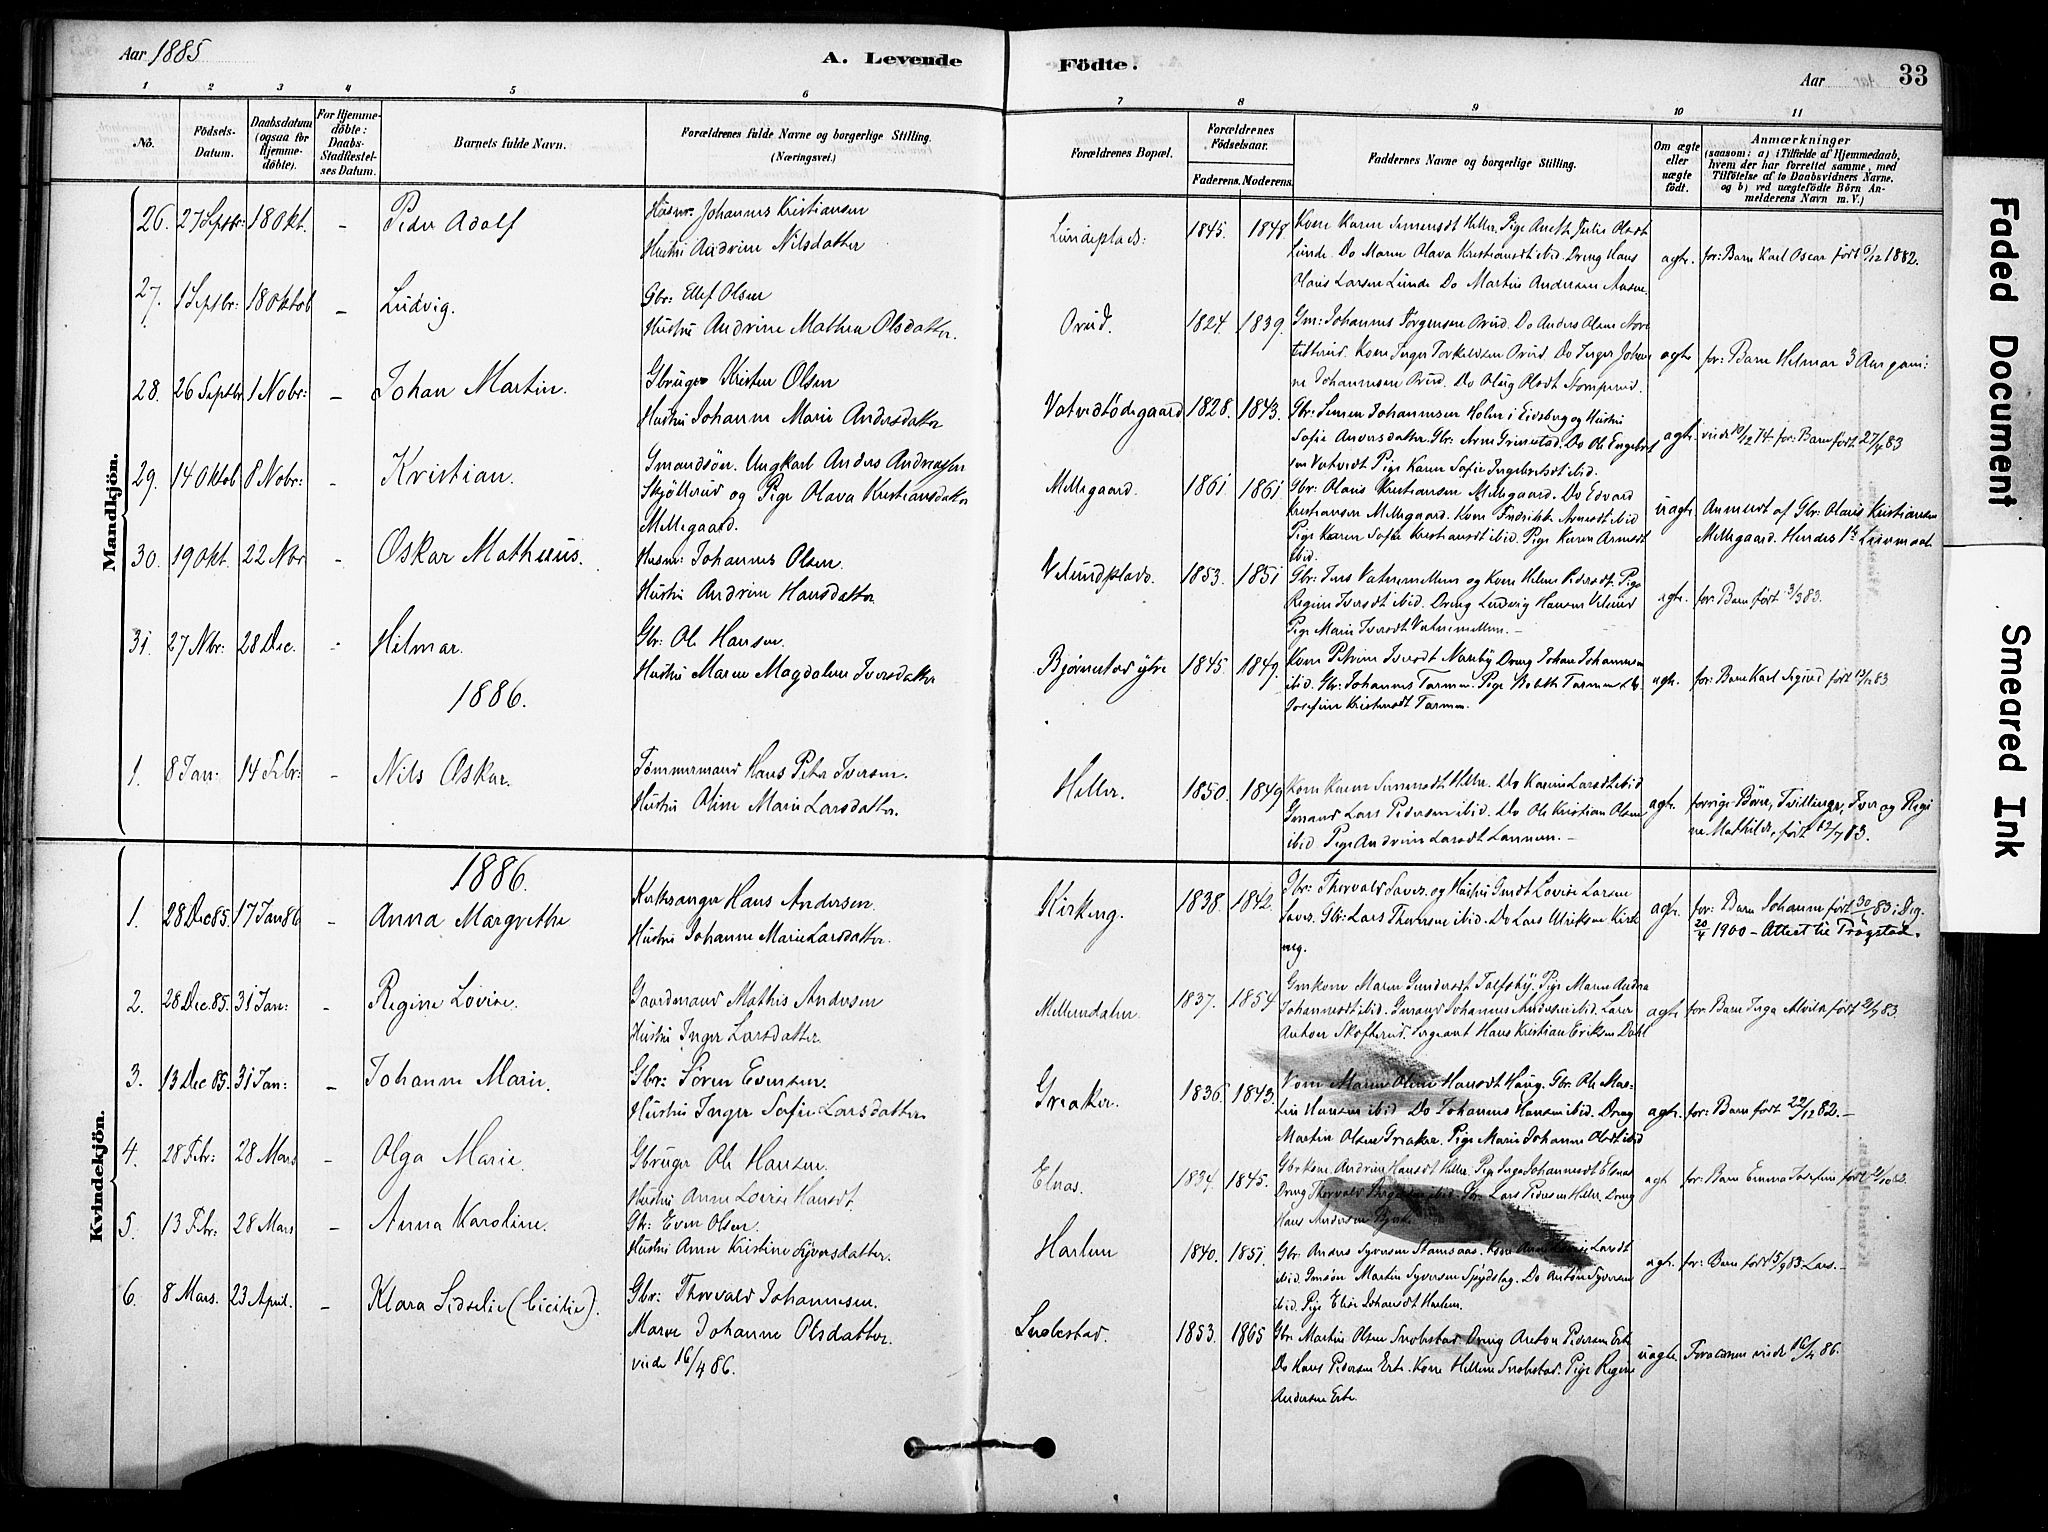 Aar 1885
A. Levende
Födte.
Aar
33
1 2 3 4 5 6 7 8 9 10 11
No.
Födsels-
Datum.
Daabsdatum
(ogsaa for
Hjemme-
döbte).
For Hjemme-
döbte:
Daabs-
Stadfæstel-
ses Datum.
Barnets fulde Navn.
Forældrenes fulde Navne og borgerlige Stilling.
(Næringsvei.)
Forældrenes Bopæl.
Forældrenes
Födselsaar.
Faderens. Moderens.
Faddernes Navne og borgerlige Stilling.
Om ægte
eller
uægte
födt.
Anmærkninger
(saasom: a) i Tilfælde af Hjemmedaab,
hvem der har forrettet samme, med
Tilföielse af to Daabsvidners Navne,
og b) ved uægtefödte Börn An-
melderens Navn m. V.)
Mandkjön.
26. 27 Septbr: 18 Okt. - Peder Adolf
Husm: Johannes Kristiansen
Hustru Andrine Nilsdatter
Lundeplads: 1845. 1848.
Lunde. Do Maren Olava Kristiansdt ibid. Dreng Hans
Olaus Larsen Lunde Do Martin Andersen
ægte. for: Barn Karl Oscar født 6/12 1882.
27. 1 Septbr: 18 Oktob - Ludvig.
Gbr: Ellef Olsen
Hustru Andrine Mathea Olsdatter.
Orud. 1824. 1839.
Gm: Johannes Jørgensen Orud. Do Anders Olsen
Kone Inger Torkeldsen Orud. Do Inger
Johannesen Orud. Do Oluf Olsdt
ægte for: Barn Helmar 3 Aar gam:
28. 26 Septbr 1 Nobr: - Johan Martin.
Gbruger Kristen Olsen
Hustru Johanne Marie Andersdatter
Vatvedtødegaard 1828. 1843.
Gbr: Jensen Johannesen Holm i Eidsberg og Hustru
Sofie Andersdatter. Gbr: Arne Grimstad. Do Ole Engebret
sen Vatvedt Pige Karen Sofie Ingebretsdt ibid.
ægte. viede 10/12 74 for: Barn født 27/4 83
29. 14 Oktob 8 Nobr: - Kristian.
Gmandsøn. Ungkarl Anders Andreassen
Skjøllerud og Pige Olava Kristiansdatter
Mellegaard.
Mellegaard. 1861 1861
Gbr: Olaus Kristiansen Mellegaard. Do Edvard
Kristiansen Mellegaard. Kone Fredrikke Arnesdt ibid
Pige Karen Sofie Kristiansdt ibid. Pige Karen Arnesdt
ibid.
uægte Anmeldt af Gbr: Olaus Kristiansen
Mellegaard. Hendes 1ste Leiermaal.
30. 19 Okt. 22 Nbr - Oskar Mathæus.
Husm: Johannes Olsen.
Hustru Andrine Hansdatter.
Velundplads. 1853. 1851
Gbr: Jens Vatnemellem og Kone Helene Pedersdt. Pige
Regine Iversdt ibid. Dreng Ludvig Hansen Velund
Pige Marie Iversdt Vatnemellem. -
ægte. for: Barn født 3/3 83.
31. 27 Nbr: 28 Dec. - Hilmar.
Gbr: Ole Hansen.
Hustru Maren Magdalene Iversdatter
Bjørnstad ytre 1845. 1849.
Kone Petrine Iversdt Narreby Dreng Johan Johannesen
ibid. Gbr: Johannes Tarmen. Pige Bolette Tarmen
Josefine Kristensdt Tarmen.
ægte. for: Barn Karl Sigurd født
1886.
1. 8 Jan: 14 Febr: - Nils Oskar.
Tømmermand Hans Peter Iversen.
Hustru Oline Marie Larsdatter.
Heller. 1850. 1849
Kone Karen Simensdt Heller. Do Karine Larsdt ibid
Gmand Lars Pedersen ibid. Do Ole Kristian Olsen
ibid Pige Andrine Larsdt
ægte. forrige Børn, Tvillinge, Iver og Regi
ne Mathilde, født 12/7 83.
Kvindekjön.
1886.
1. 28 Dec 85. 17 Jan 86 - Anna Margrethe
Kirkesanger Hans Andersen.
Hustru Johanne Marie Larsdatter.
Kirkeng. 1838. 1842.
Gbr: Thorvald Saxes. og Hustru Lovise Larsen
Saxes. Gbr: Lars Thoresen ibid. Do Lars Ulriksen Kirk
eng.
ægte. for: Barn Johanne født
20/4 1900 - Attest til Trøgstad.
2. 28 Dec. 85. 31 Jan: - Regine Lovise.
Gaardmand Mathis Andersen
Hustru Inger Larsdatter
Mellemdalen. 1837. 1854
Gmkone Maren Gundersdt Pige Maren Andrea
Johannesdt ibid. Gmand Johannes Andersen ibid. Lærer
Anton Skofterud. Sergeant Hans Kristian Eriksen Dahl
ægte for: Barn Inga Alvilde født
3. 13 Dec 85. 31 Jan: - Johanne Marie.
Gbr: Søren Evensen.
Hustru Inger Sofie Larsdatter.
Greaker. 1836. 1843.
Kone Maren Oline Hansdt Haug. Gbr. Ole Mar-
tin Hansen ibid Do Johannes Hansen ibid. Dreng
Martin Olsen Greaker. Pige Marie Johanne Olsdt ibid
ægte. for: Barn født 22/12 82. -
4. 28 Febr: 28 Mars - Olga Marie.
Gbruger Ole Hansen.
Hustru Anne Lovise Hansdt.
Elnæs. 1834. 1845.
Gbrkone. Andrine Hansdt Heller. Pige Inga Johannesdt Elnæs
Dreng Thorvald ibid. Lars Pedersen Heller. Dreng
Hans Andersen
ægte for: Barn Emma Josefine født
5. 13 Febr: 28 Mars - Anna Karoline.
Gbr: Even Olsen.
Hustru Anne Kristine Syversdatter.
Harlem 1840. 1851.
Gbr. Anders Syversen Stamsaas. Kone Anne Larsdt
ibid. Gmsøn Martin Syversen Spydslog. Do Anton Syversen
ibid. Pige Elise Johansdt Harlem.
ægte. for: Barn født 15/9 83. Lars. -
6. 8 Mars. 23 April. - Klara Sidselie (Cicilie).
Gbr: Thorvald Johannesen.
Maren Johanne Olsdatter.
viede 16/4 86.
Snolestad. 1853. 1865
Gbr Martin Olsen Snolestad. Dreng Anton Pedersen Erte
Do Hans Pedersen Erte. Kone Hellene Snolestad. Pige Regine
Andersen Erte.
uægte. Forældrene viede 16/4 86.
Faded Document
Smeared Ink